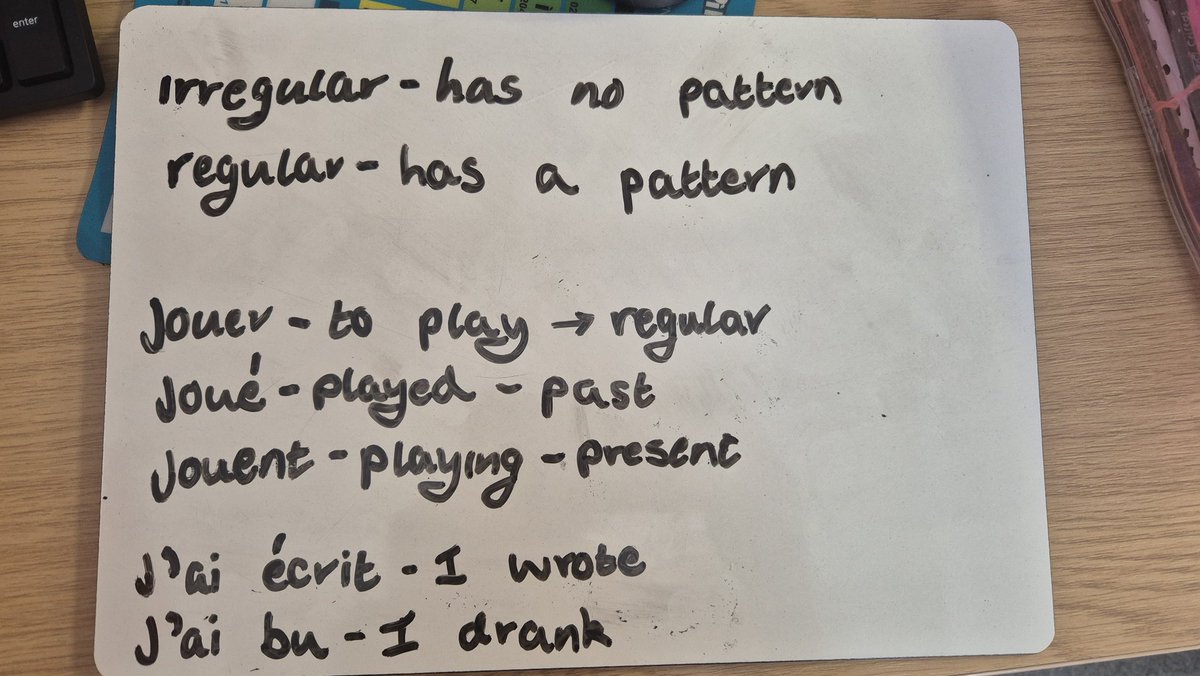 enter
irregular - has no pattern
regular - has a pattern
Jouer - to play → regular
Joué - played - past
Jouent - playing - present
J'ai écrit - I wrote
J'ai bu - I drank